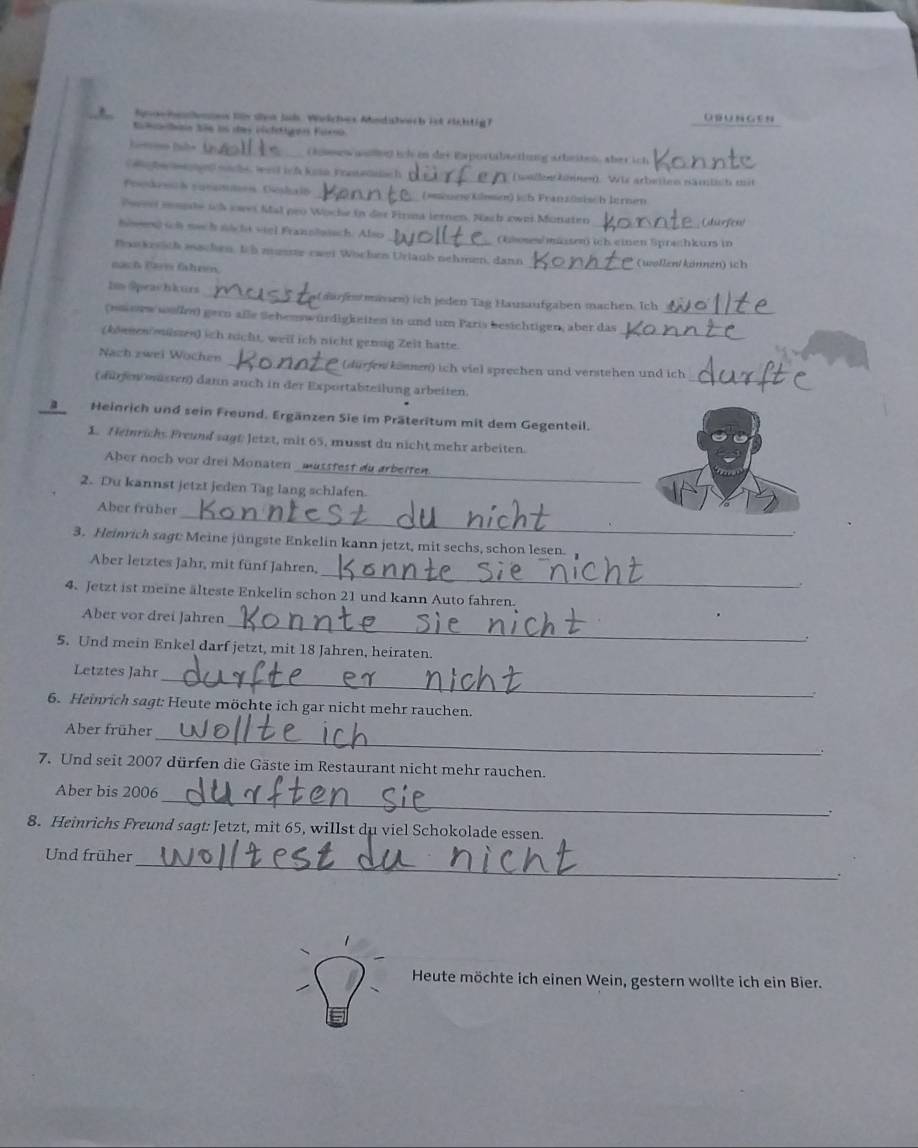 für den Job. Welches Modalverb ist richtig?
ÜBUNGEN
Schreiben Sie in der richtigen Form.
wollte ich in der Exportabteilung arbeiten, aber ich Konnte
nicht, weil ich kein Französisch dürfen (wollen/können). Wir arbeiten nämlich mit
Frankreich zusammen. Deshalb Konnte (müssen/können) ich Französisch lernen.
ich zwei Mal pro Woche in der Firma lernen. Nach zwei Monaten Konnte (dürfen/
können) ich noch nicht viel Französisch. Also wollte (können/müssen) ich einen Sprachkurs in
Frankreich machen. Ich musste zwei Wochen Urlaub nehmen, dann Konnte (wollen/können) ich
nach Paris fahren.
Im Sprachkurs Musste (dürfen/müssen) ich jeden Tag Hausaufgaben machen. Ich wollte
(müssen/wollen) gern alle Sehenswürdigkeiten in und um Paris besichtigen, aber das Konnte
(können/müssen) ich nicht, weil ich nicht genug Zeit hatte.
Nach zwei Wochen Konnte (dürfen/können) ich viel sprechen und verstehen und ich durfte
(dürfen/müssen) dann auch in der Exportabteilung arbeiten.
Heinrich und sein Freund. Ergänzen Sie im Präteritum mit dem Gegenteil.
1. Heinrichs Freund sagt: Jetzt, mit 65, musst du nicht mehr arbeiten.
Aber noch vor drei Monaten musstest du arbeiten.
2. Du kannst jetzt jeden Tag lang schlafen.
Aber früher Konntest du nicht.
3. Heinrich sagt: Meine jüngste Enkelin kann jetzt, mit sechs, schon lesen.
Aber letztes Jahr, mit fünf Jahren, Konnte sie nicht.
4. Jetzt ist meine älteste Enkelin schon 21 und kann Auto fahren.
Aber vor drei Jahren Konnte sie nicht.
5. Und mein Enkel darf jetzt, mit 18 Jahren, heiraten.
Letztes Jahr durfte er nicht.
6. Heinrich sagt: Heute möchte ich gar nicht mehr rauchen.
Aber früher wollte ich.
7. Und seit 2007 dürfen die Gäste im Restaurant nicht mehr rauchen.
Aber bis 2006 durften sie.
8. Heinrichs Freund sagt: Jetzt, mit 65, willst du viel Schokolade essen.
Und früher wolltest du nicht.
Heute möchte ich einen Wein, gestern wollte ich ein Bier.